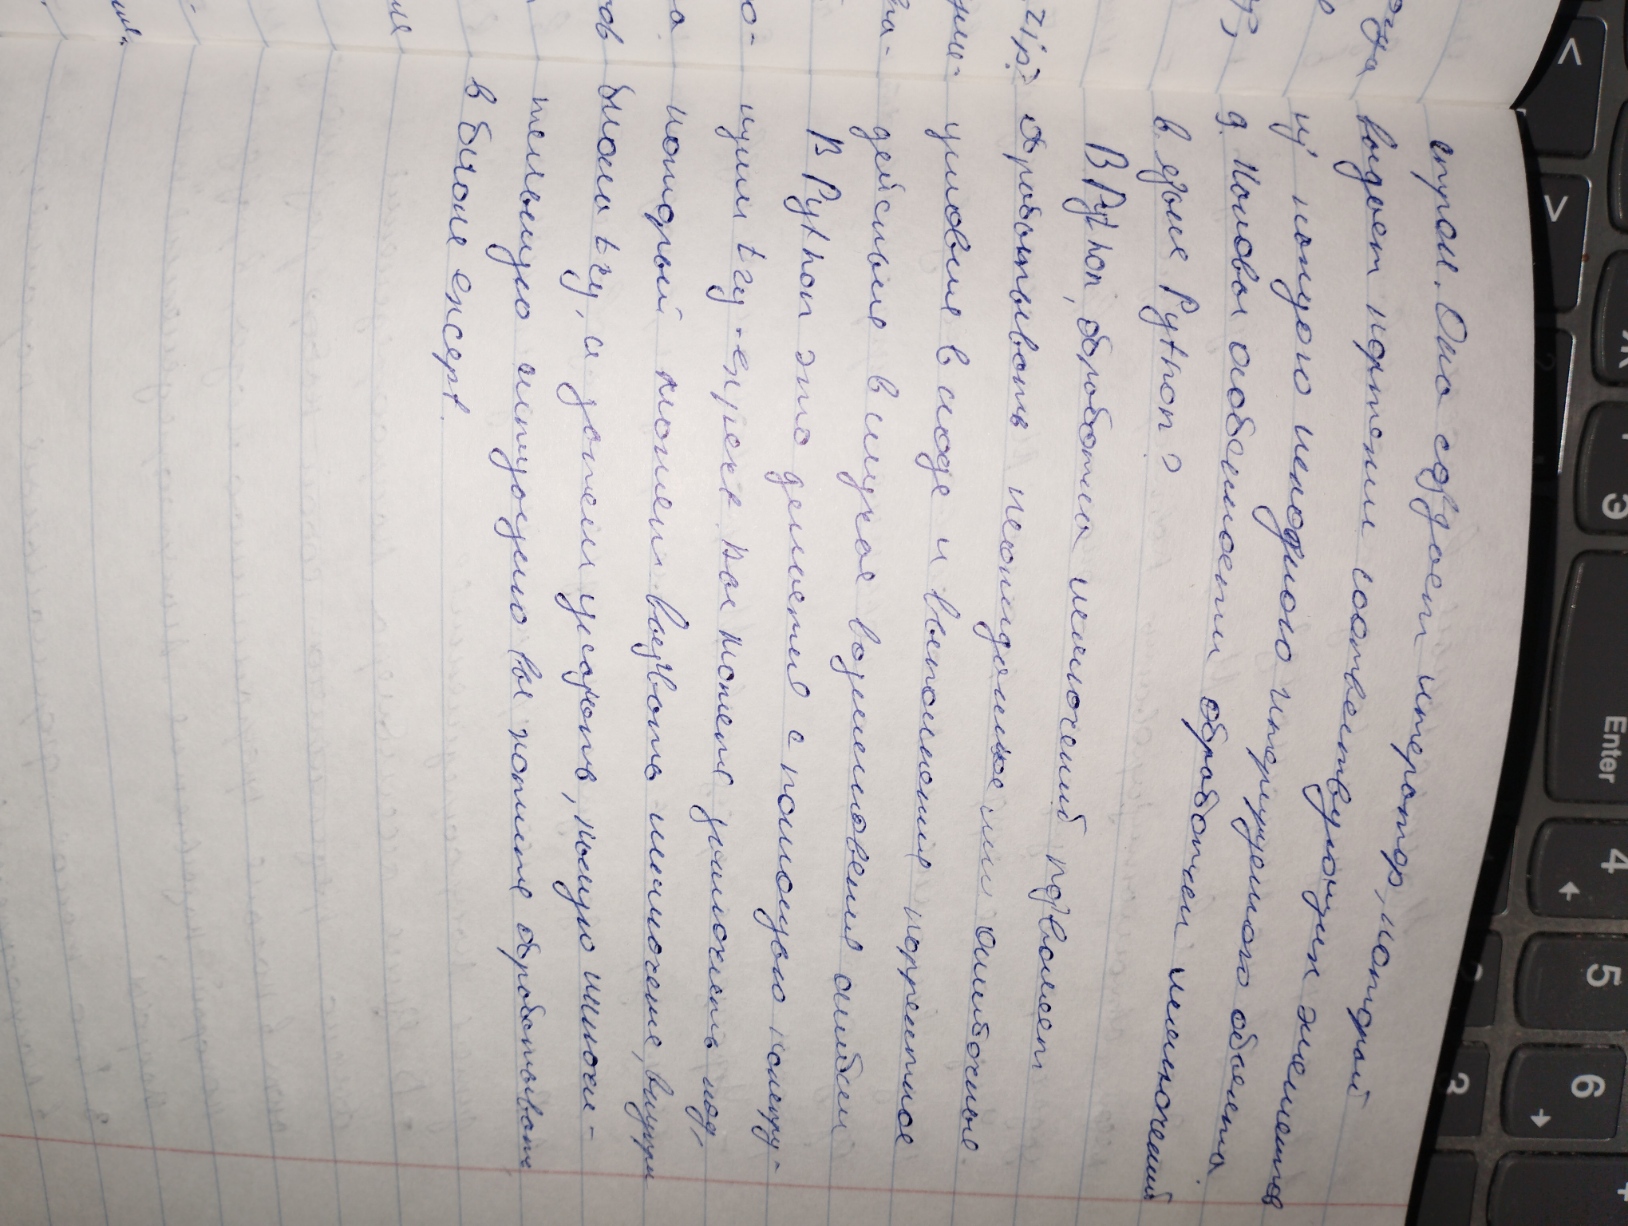 Ж
Э
Enter
4
5
6
<
>
2
3
строк. Она создает итератор, который
выдает кортежи соответствующих элементов
из каждого исходного итерируемого объекта.
9. Каковы особенности обработки исключений
в языке Python?
В Python, обработка исключений позволяет
обрабатывать неожиданные или ошибочные
условия в коде и выполнения корректное
действия в случае возникновения ошибки
В Python это делается с помощью констру-
кции try-except. Вы можете заключить код,
который может вызвать исключение, внутри
блока try, а затем указать, какую исключи-
тельную ситуацию вы хотите обрабатывать
в блоке except.
zip?